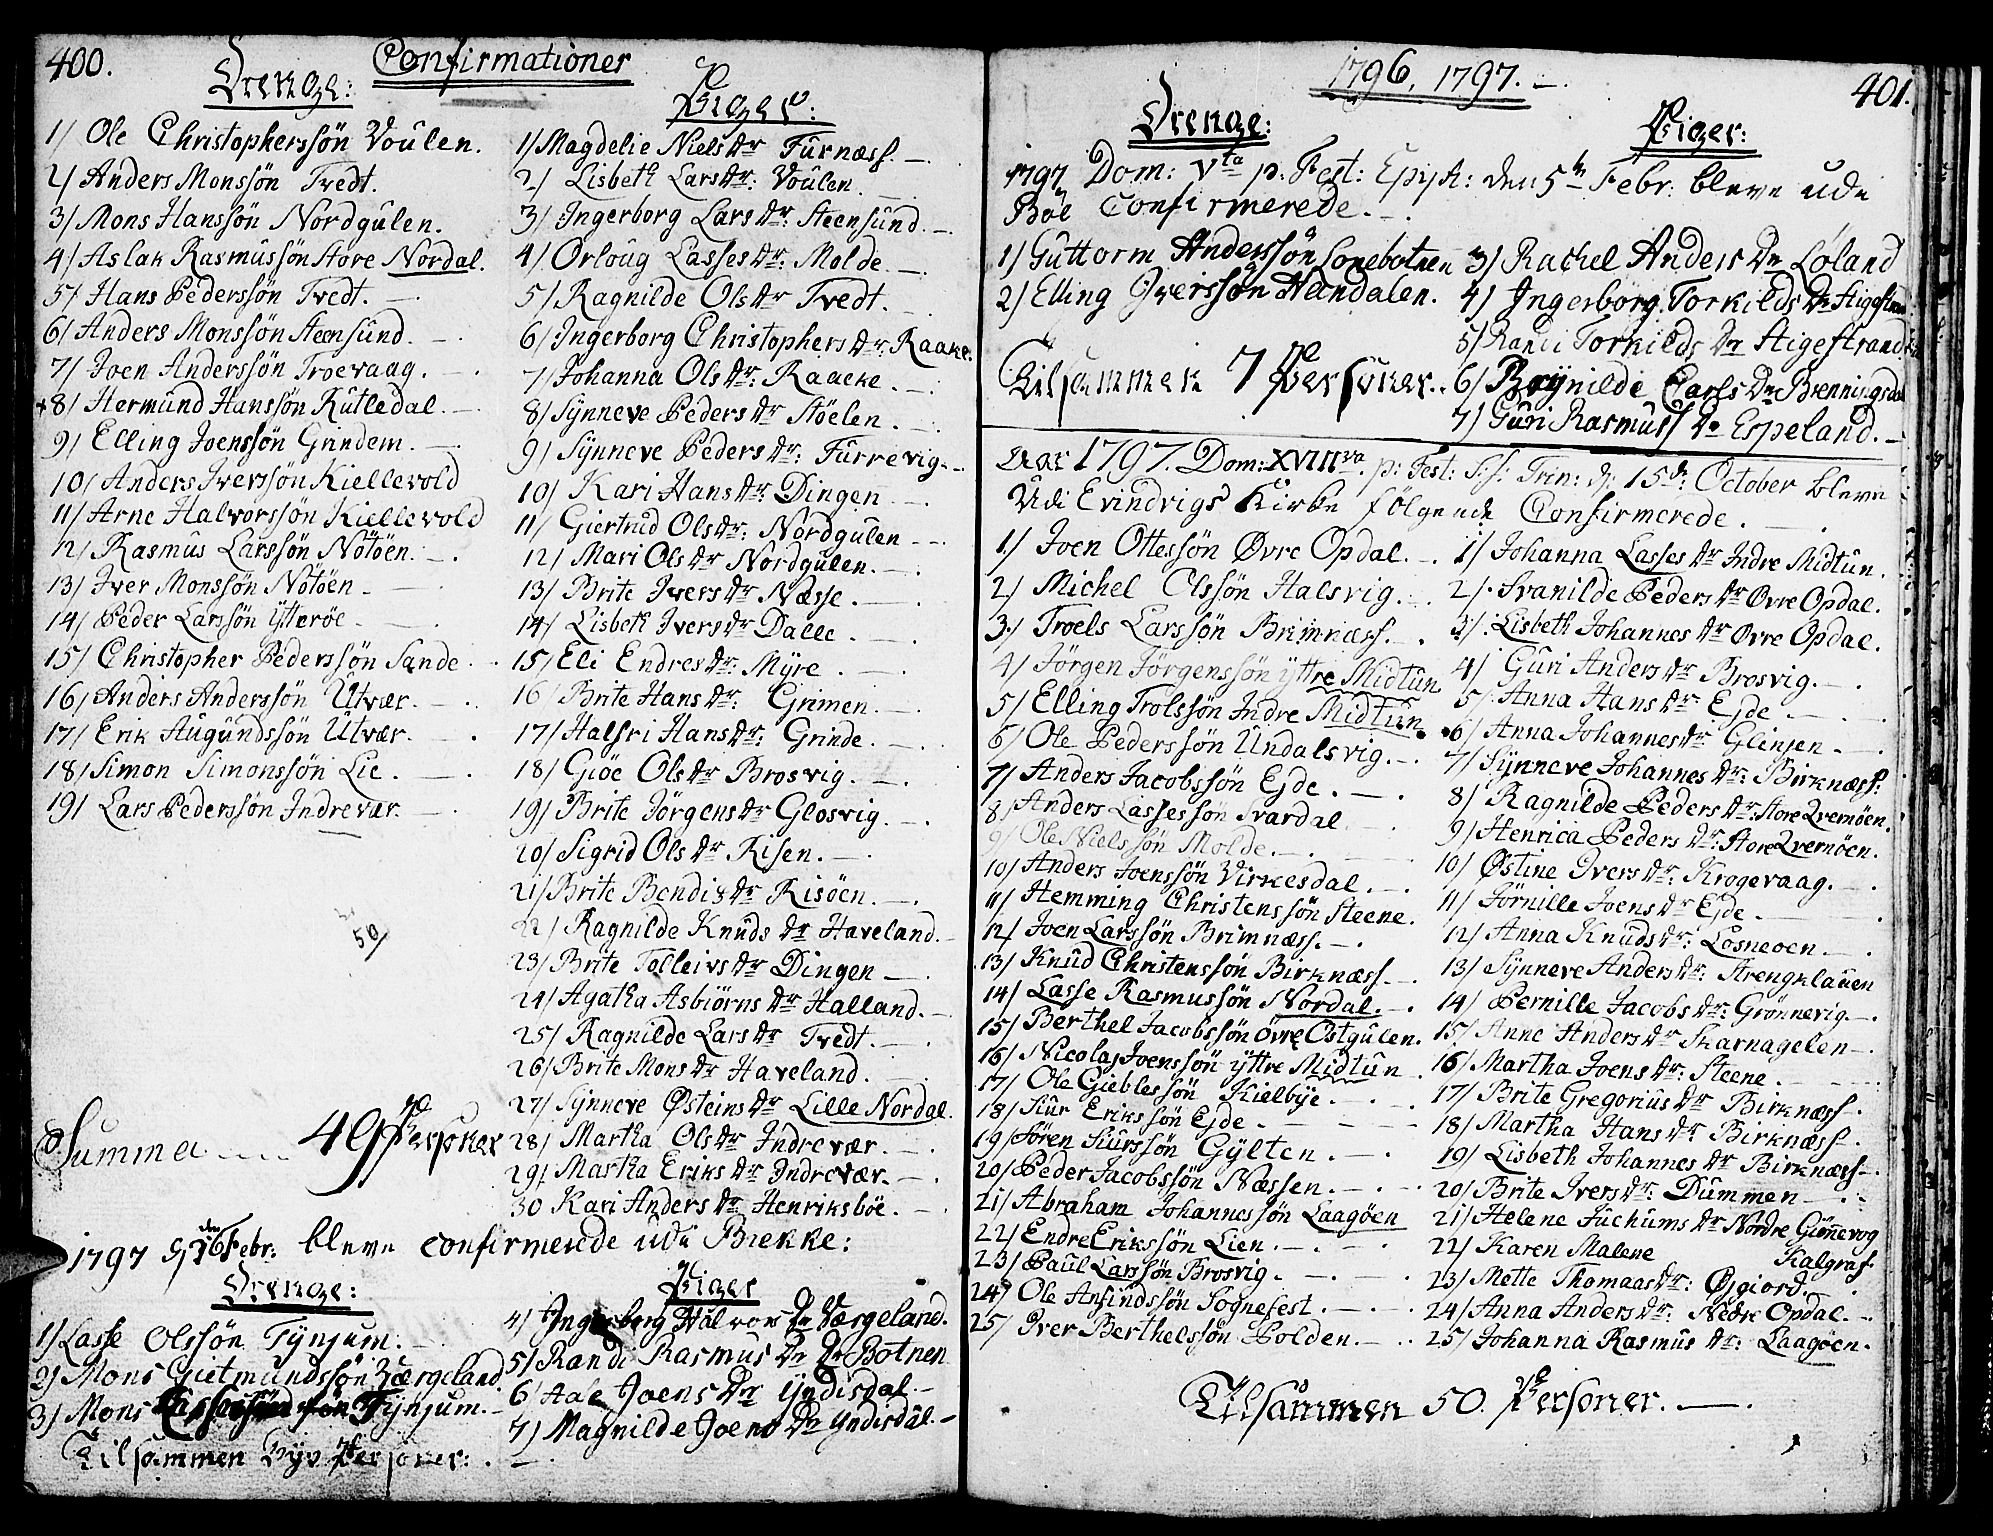 400.
Confirmationer
Drenge:
1/ Ole Christopherssön Voulen.
2/ Anders Monssön Tvedt.
3/ Mons Hanssön Nordgulen.
4/ Aslak Rasmussön Store Nordal.
5/ Hans Pederssön Tvedt. —
6/ Anders Monssön Steensund. —
7/ Joen Anderssön Troevaag. —
+8/ Hermund Hanssön Rutledal. —
9/ Elling Joenssön Grindem. —
10/ Anders Iverssön Kiellevold
11/ Arne Halvorssön Kiellevold
12/ Rasmus Larssön Nötöen. —
13/ Iver Monssön Nötöen. —
14/ Peder Larssön Ytteröe —
15/ Christopher Pederssön Sande
16/ Anders Anderssön Utvær. —
17/ Erik Augundssön Utvær. —
18/ Simon Simonssön Lie. —
19/ Lars Pederssön Indrevær. —
50/
Summa 49 Personer
Piger:
1/ Magdelie Niels dr Furnæss. —
2/ Lisbeth Lars dr: Voulen. —
3/ Ingerborg Lars dr: Steensund. —
4/ Orloug Lasses dr: Molde. —
5/ Ragnilde Ols dr Tvedt. —
6/ Ingerborg Christophers dr: Raake.
7/ Johanna Ols dr: Raacke. —
8/ Synneve Peders dr Stöelen. —
9/ Synneve Peders dr: Furrevig. —
10/ Kari Hans dr: Dingen. —
11/ Giertrud Ols dr: Nordgulen —
12/ Mari Ols dr Nordgulen. —
13/ Brite Ivers dr Næsse. —
14/ Lisbeth Ivers dr Dalle. —
15/ Eli Endres dr: Myre. —
16/ Brite Hans dr: Grimen. —
17/ Halfri Hans dr: Grinde. —
18/ Giöe Ols dr Brosvig. —
19/ Brite Jörgens dr Glosvig. —
20/ Sigrid Ols dr Risen. —
21/ Brite Bendix dr Risöen. —
22/ Ragnilde Knuds dr Haveland. —
23/ Brite Tolleivs dr Dingen —
24/ Agatha Asbiörns dr Halland. —
25/ Ragnilde Lars dr Tvedt. —
26/ Brite Mons dr Haveland. —
27/ Synneve Østeins dr Lille Nordal.
28/ Martha Ols dr Indrevær. —
29/ Martha Eriks dr Indrevær. —
30 Kari Anders dr Henriksböe. —
1797 den Febr: bleve confirmerede udi Brekke:
Drenge:
1/ Lasse Olssön Tynjum.
2/ Mons Gietmundssön Værgeland.
3/ Mons Tynjum. —
Tilsammen Syv Personer:
Piger
4/ Ingerborg Halvors dr Værgeland.
5/ Randi Rasmus Dr Botnen
6/ Aae Joens Dr Yndisdal. —
7/ Magnilde Joens Dr Yndisdal. —
1796, 1797. —
401.
Drenge:
Piger:
1797 Dom: Vta p. Fest: Epiph: den 5te Febr: bleve udi
Böe Confirmerede. —
1/ Guttorm Anderssön Sonebotnen
2/ Elling Iverssön Hændalen.
Tilsammen 7 Personer.
3/ Rachel Anders Dr Löland
4/ Ingerborg Torkilds Dr Stigestrand
5/ Randi Torkilds Dr Stigestrand
6/ Raynilde Carls Dr Brenningsdal
7/ Guri Rasmuss Dr Espeland. —
Aar 1797. Dom: XVIIIva p: Fest: S.S. Trin: d: 15de October bleve
Udi Evindvigs Kirke fölgende Confirmerede. —
1/ Joen Ottessön Øvre Opdal. —
2/ Michel Olssön Halsvig. —
3/ Troels Larssön Brimnæss. —
4/ Jörgen Jörgenssön Yttre Midtun
5/ Elling Trolssön Indre Midtun.
6/ Ole Pederssön Undalsvig. —
7/ Anders Jacobssön Eide. —
8/ Anders Lassessön Svardal —
9/ Ole Nielssön Molde. —
10/ Anders Joenssön Virkesdal. —
11/ Hemming Christenssön Steene.
12/ Joen Larssön Brimnæss. —
13/ Knud Christenssön Birknæss. —
14/ Lasse Rasmussön Nordal. —
15/ Berthel Jacobssön Øvre Ostgulen.
16/ Nicolai Joenssön Yttre Midtun
17/ Ole Gieblessön Kielbye. —
18/ Siur Erikssön Ejde —
19/ Sören Siurssön Gylten. —
20/ Peder Jacobssön Næssen. —
21/ Abraham Johannessön Laagöen
22/ Endre Erikssön Lien. —
23/ Paul Larssön Brosvig. —
24/ Ole Anfindssön Sognefest. —
25/ Iver Berthelssön Polden. —
1/ Johanna Lasses dr Indre Midtun.
2/ Svanilde Peders dr Øvre Opdal.
3/ Lisbeth Johannes dr Øvre Opdal.
4/ Guri Anders dr Brosvig. —
5/ Anna Hans dr: Ejde —
6/ Anna Johannes dr Glinjen —
7/ Synneve Johannes dr: Birknæss.
8/ Ragnilde Peders dr: Store Qvernöen.
9/ Henrica Peders dr: Store Qvernöen.
10/ Østine Ivers dr: Krogevaag. —
11/ Jörnille Joens dr Ejde —
12/ Anna Knuds dr: Losneoen —
13/ Synneve Anders dr: Strengklauen
14/ Pernille Jacobs dr: Grönnevig. —
15/ Anne Anders dr Skarnagelen —
16/ Martha Joens dr: Steene. —
17/ Brite Gregorius dr Birknæss.
18/ Martha Hans dr Birknæss.
19/ Lisbeth Johannes dr Birknæss. —
20/ Brite Ivers dr: Dummen —
21/ Helene Juchums dr Nordre Gönnevog
22/ Karen Malene Kalgraf
23/ Mette Thomaas dr: Øigiord. —
24/ Anna Anders dr: Nedre Opdal. —
25/ Johanna Rasmus dr: Laagöen. —
Tilsammen 50. Personer. —